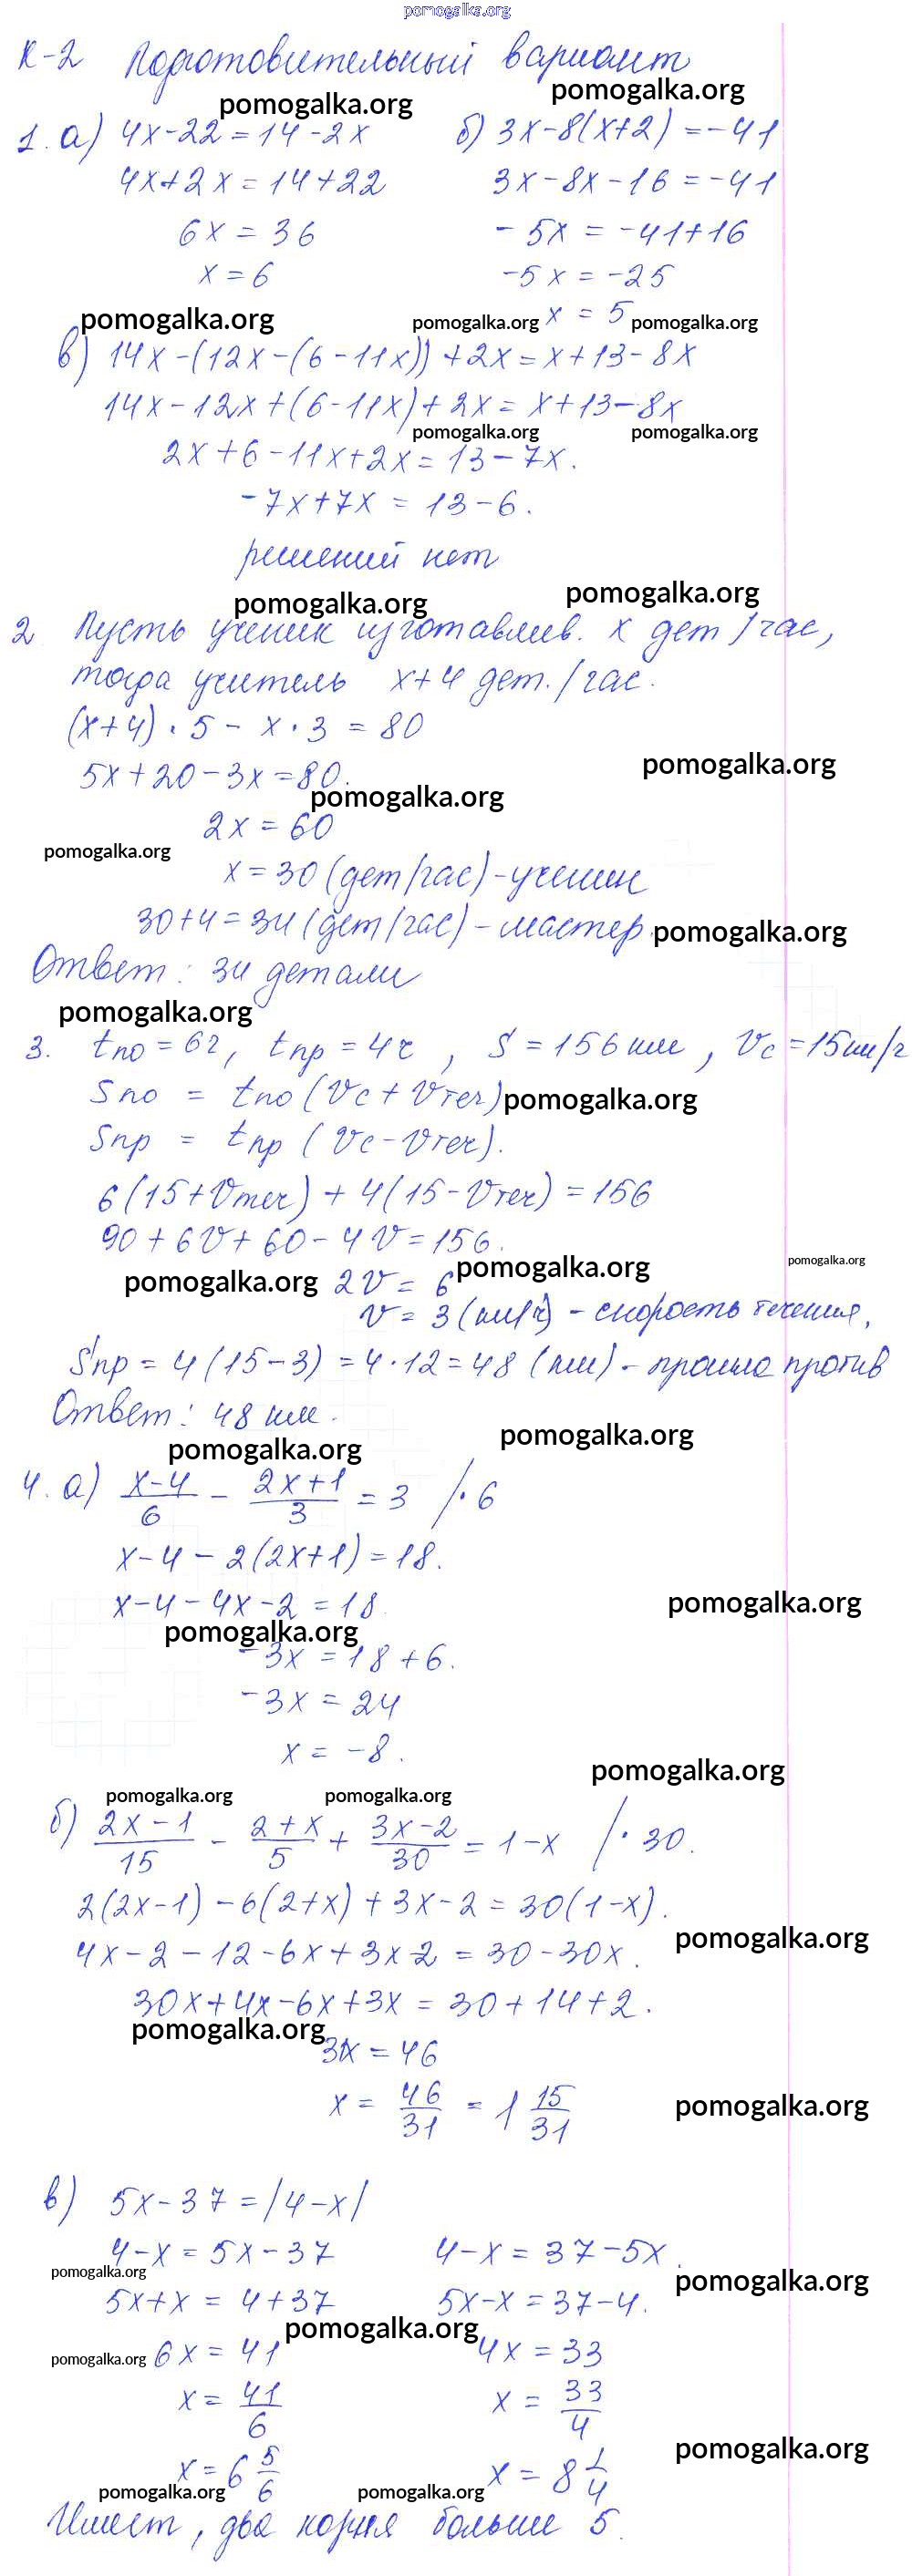 pomogalka.org
К-2 Подготовительный вариант
pomogalka.org pomogalka.org
1. а) 4x-22=14-2x б) 3x-8(x+2)=-41
4x+2x=14+22 3x-8x-16=-41
6x=36 -5x=-41+16
x=6 -5x=-25
pomogalka.org pomogalka.org x = 5 pomogalka.org
в) 14x-(12x-(6-11x))+2x=x+13-8x
14x-12x+(6-11x)+2x=x+13-8x
pomogalka.org pomogalka.org
2x+6-11x+2x=13-7x.
-7x+7x=13-6.
решений нет
pomogalka.org pomogalka.org
2 Пусть ученик изготавлив. x дет/час,
тогда учитель x+4 дет./час.
(x+4)·5-x·3=80
pomogalka.org
5x+20-3x=80.
pomogalka.org
2x=60
pomogalka.org
x=30(дет/час)-ученик
30+4=34(дет/час)-мастер. pomogalka.org
Ответ: 34 детали
pomogalka.org
3. tпо=6ч, tпр=4ч, S=156км, Vс=15км/ч
Sпо = tпо(Vс+Vтеч) pomogalka.org
Sпр = tпр(Vс-Vтеч).
6(15+Vтеч)+4(15-Vтеч)=156
90+6V+60-4V=156.
pomogalka.org
pomogalka.org 2V=6 pomogalka.org
V=3(км/ч)-скорость течения,
Sпр=4(15-3)=4·12=48(км)-прошла против
Ответ: 48 км.
pomogalka.org pomogalka.org
4. а) (x-4)/6 - (2x+1)/3 = 3 /·6
x-4-2(2x+1)=18.
x-4-4x-2=18 pomogalka.org
pomogalka.org
-3x=18+6.
-3x=24
x=-8.
pomogalka.org
pomogalka.org pomogalka.org
б) (2x-1)/15 - (2+x)/5 + (3x-2)/30 = 1-x /·30.
2(2x-1)-6(2+x)+3x-2=30(1-x).
pomogalka.org
4x-2-12-6x+3x-2=30-30x.
30x+4x-6x+3x=30+14+2.
pomogalka.org
31x=46
x= 46/31 = 1 15/31 pomogalka.org
в) 5x-37=|4-x|
4-x=5x-37 4-x=37-5x.
pomogalka.org pomogalka.org
5x+x=4+37 5x-x=37-4.
pomogalka.org
pomogalka.org 6x=41 4x=33
x= 41/6 x= 33/4
pomogalka.org
x=6 5/6 x=8 1/4
pomogalka.org pomogalka.org
Имеет, два корня больше 5.